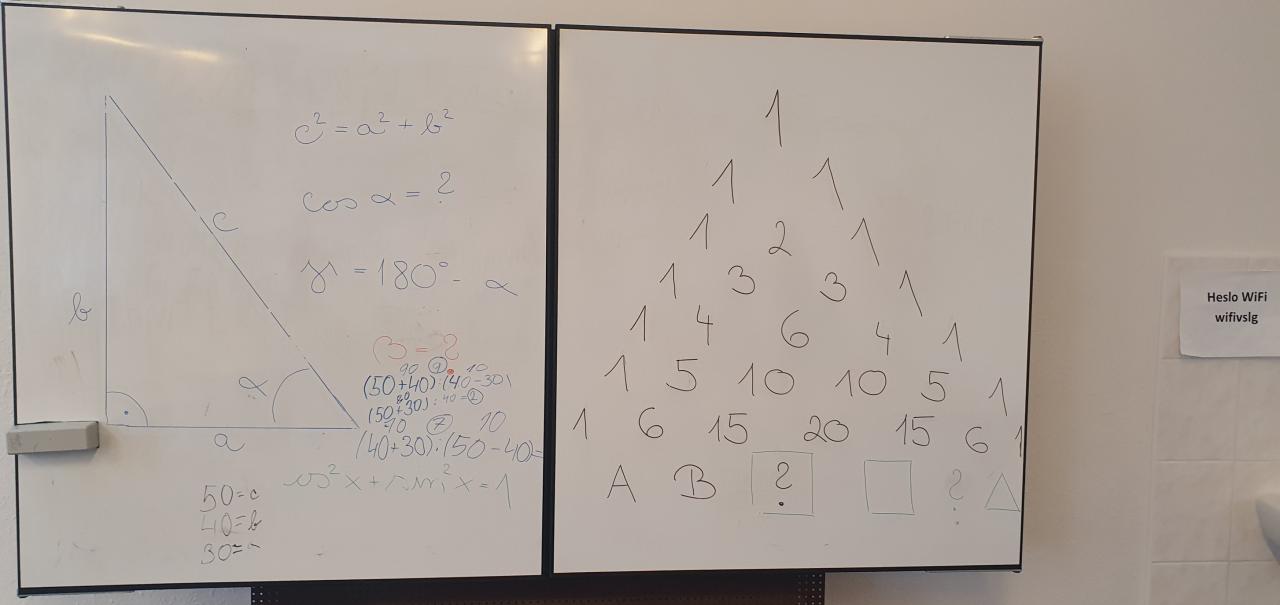 c² = a² + b²
cos α = ?
γ = 180° - α
c
b
β = ?
90 9 10
(50+40):(40-30)
80
(50+30):40=2
70 7 10
(40+30):(50-40)=
α
a
cos²x + sin²x = 1
50=c
40=b
30=
1
1 1
1 2 1
1 3 3 1
1 4 6 4 1
1 5 10 10 5 1
1 6 15 20 15 6 1
A B ? □ ? △
Heslo WiFi
wifivslg